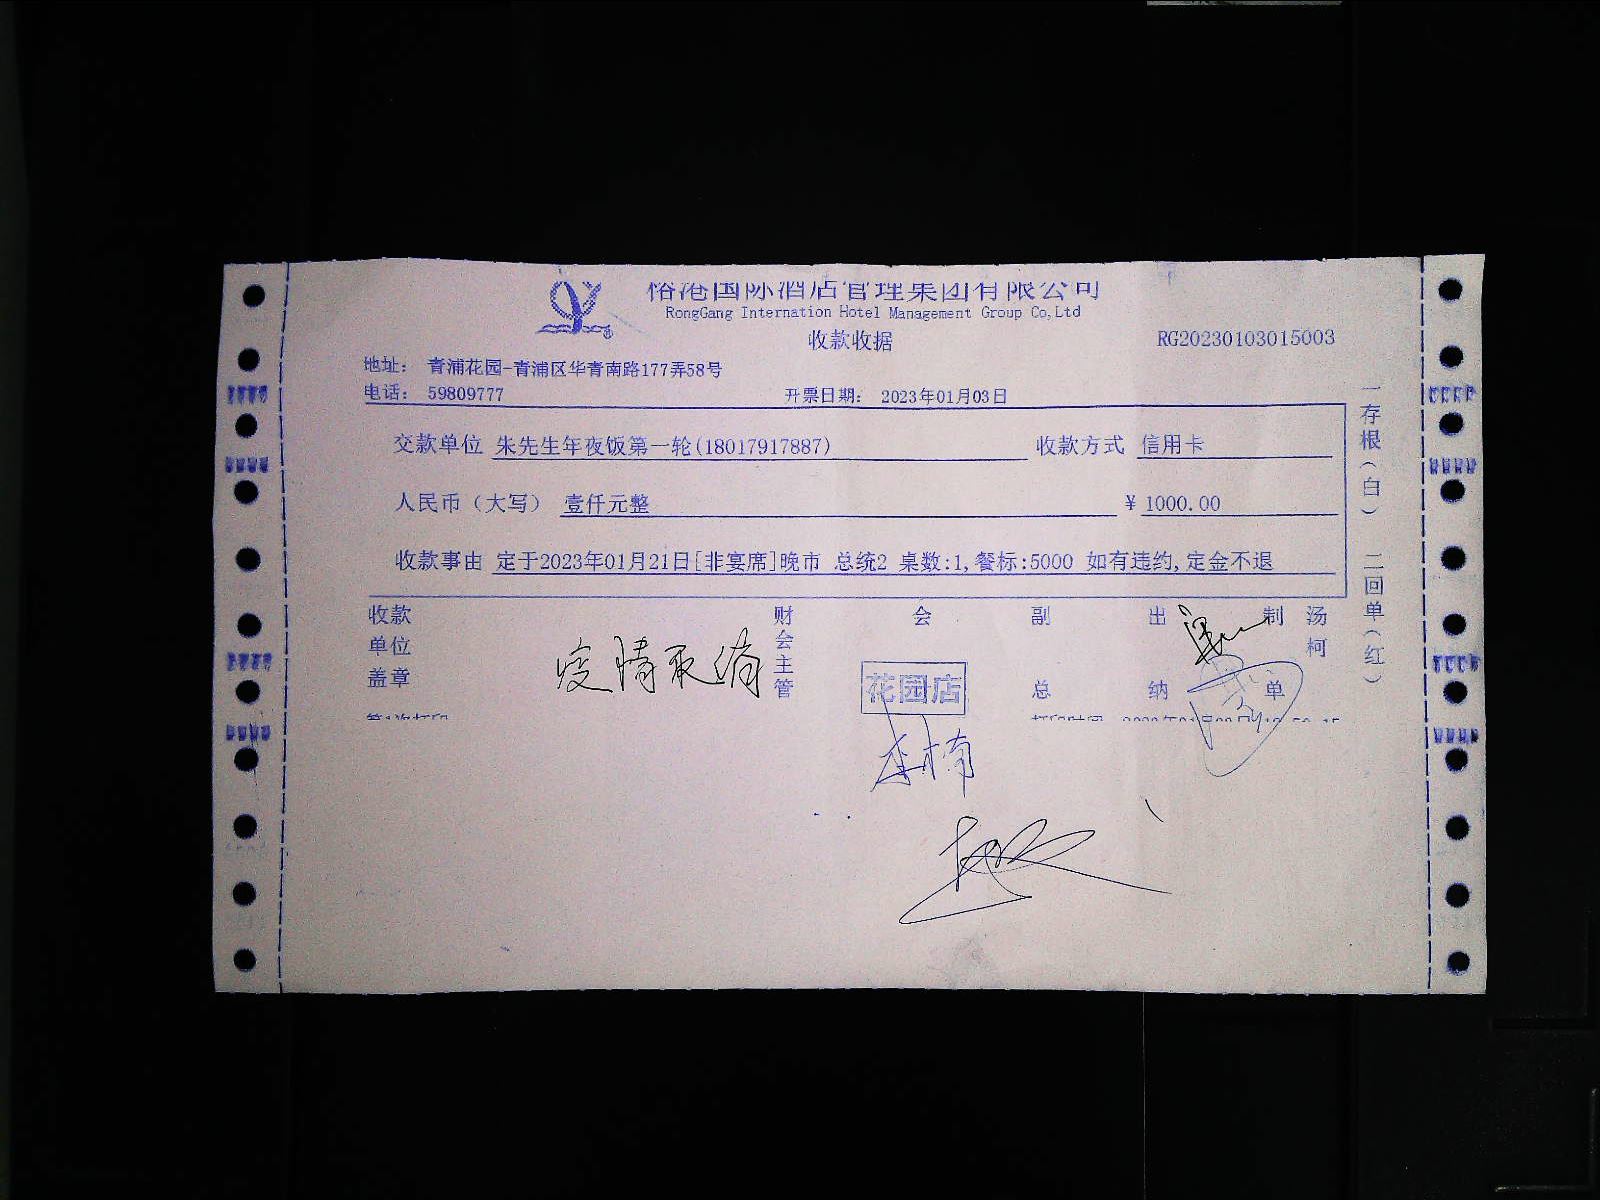 裕港国际酒店管理集团有限公司
RongGang Internation Hotel Management Group Co,Ltd
收款收据
RG20230103015003
地址： 青浦花园-青浦区华青南路177弄58号
电话： 59809777 开票日期： 2023年01月03日
交款单位 朱先生年夜饭第一轮(18017917887) 收款方式 信用卡
人民币（大写） 壹仟元整 ￥ 1000.00
收款事由 定于2023年01月21日[非宴席]晚市 总统2 桌数:1,餐标:5000 如有违约,定金不退
收款单位盖章
财会主管
会
副总
出纳
制单
汤柯
疫情取消
花园店
李楠
一存根（白） 二回单（红）